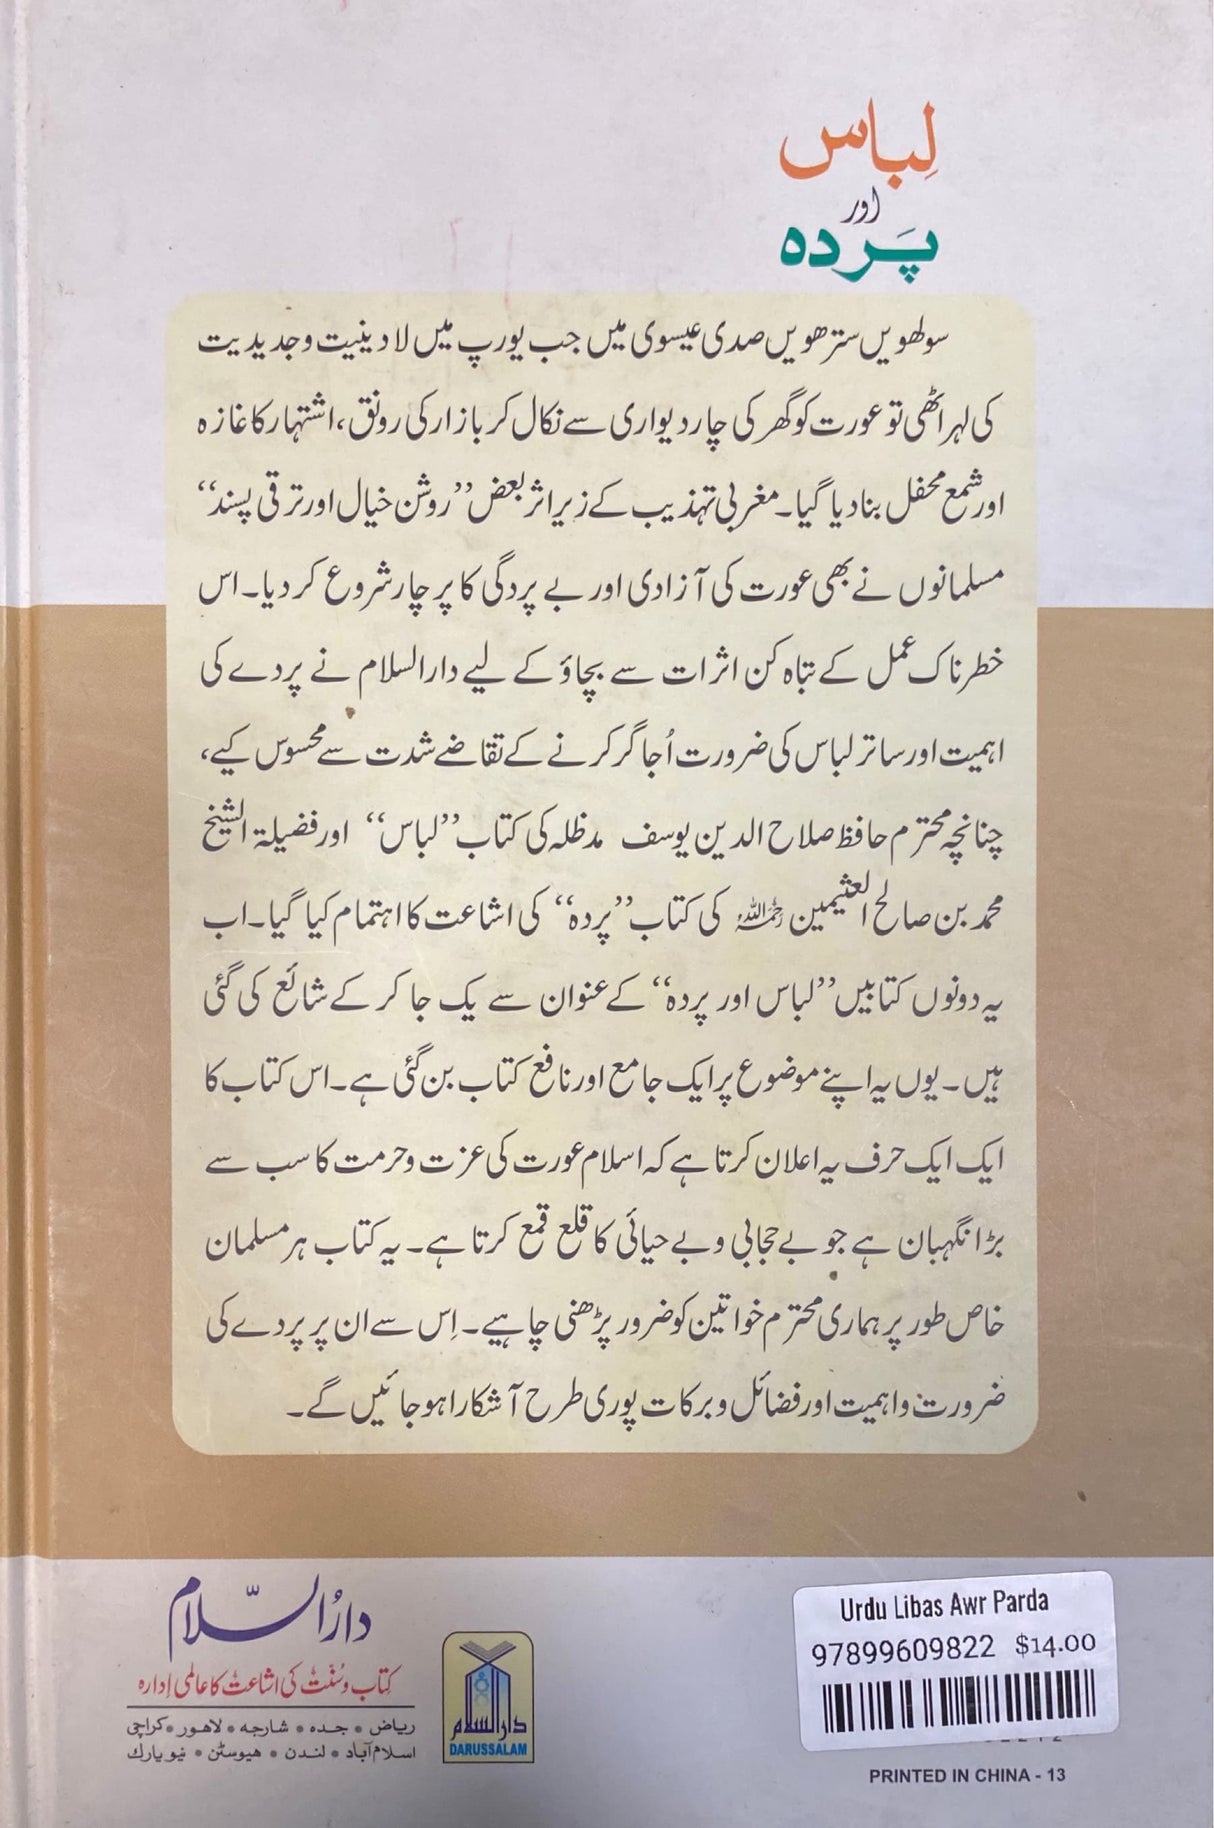 لِباس
اور
پَردہ
سولھویں سترھویں صدی عیسوی میں جب یورپ میں لادینیت وجدیدیت
کی لہر اٹھی تو عورت کو گھر کی چار دیواری سے نکال کر بازار کی رونق، اشتہار کا غازہ
اور شمع محفل بنا دیا گیا۔ مغربی تہذیب کے زیر اثر بعض ’’روشن خیال اور ترقی پسند‘‘
مسلمانوں نے بھی عورت کی آزادی اور بے پردگی کا پرچار شروع کر دیا۔ اس
خطرناک عمل کے تباہ کن اثرات سے بچاؤ کے لیے دارالسلام نے پردے کی
اہمیت اور ساتر لباس کی ضرورت اُجاگر کرنے کے تقاضے شدت سے محسوس کیے،
چنانچہ محترم حافظ صلاح الدین یوسف مدظلہ کی کتاب ’’لباس‘‘ اور فضیلۃ الشیخ
محمد بن صالح العثیمین رحمہ اللہ کی کتاب ’’پردہ‘‘ کی اشاعت کا اہتمام کیا گیا۔ اب
یہ دونوں کتابیں ’’لباس اور پردہ‘‘ کے عنوان سے یک جا کر کے شائع کی گئی
ہیں۔ یوں یہ اپنے موضوع پر ایک جامع اور نافع کتاب بن گئی ہے۔ اس کتاب کا
ایک ایک حرف یہ اعلان کرتا ہے کہ اسلام عورت کی عزت وحرمت کا سب سے
بڑا نگہبان ہے جو بے حجابی و بے حیائی کا قلع قمع کرتا ہے۔ یہ کتاب ہر مسلمان
خاص طور پر ہماری محترم خواتین کو ضرور پڑھنی چاہیے۔ اِس سے ان پر پردے کی
ضرورت واہمیت اور فضائل وبرکات پوری طرح آشکارا ہو جائیں گے۔
دارُالسّلام
کتاب و سُنّت کی اشاعت کا عالمی اِدارہ
ریاض • جدہ • شارجہ • لاہور • کراچی
اسلام آباد • لندن • ہیوسٹن • نیو یارک
دارالسلام
DARUSSALAM
Urdu Libas Awr Parda
97899609822 $14.00
PRINTED IN CHINA - 13